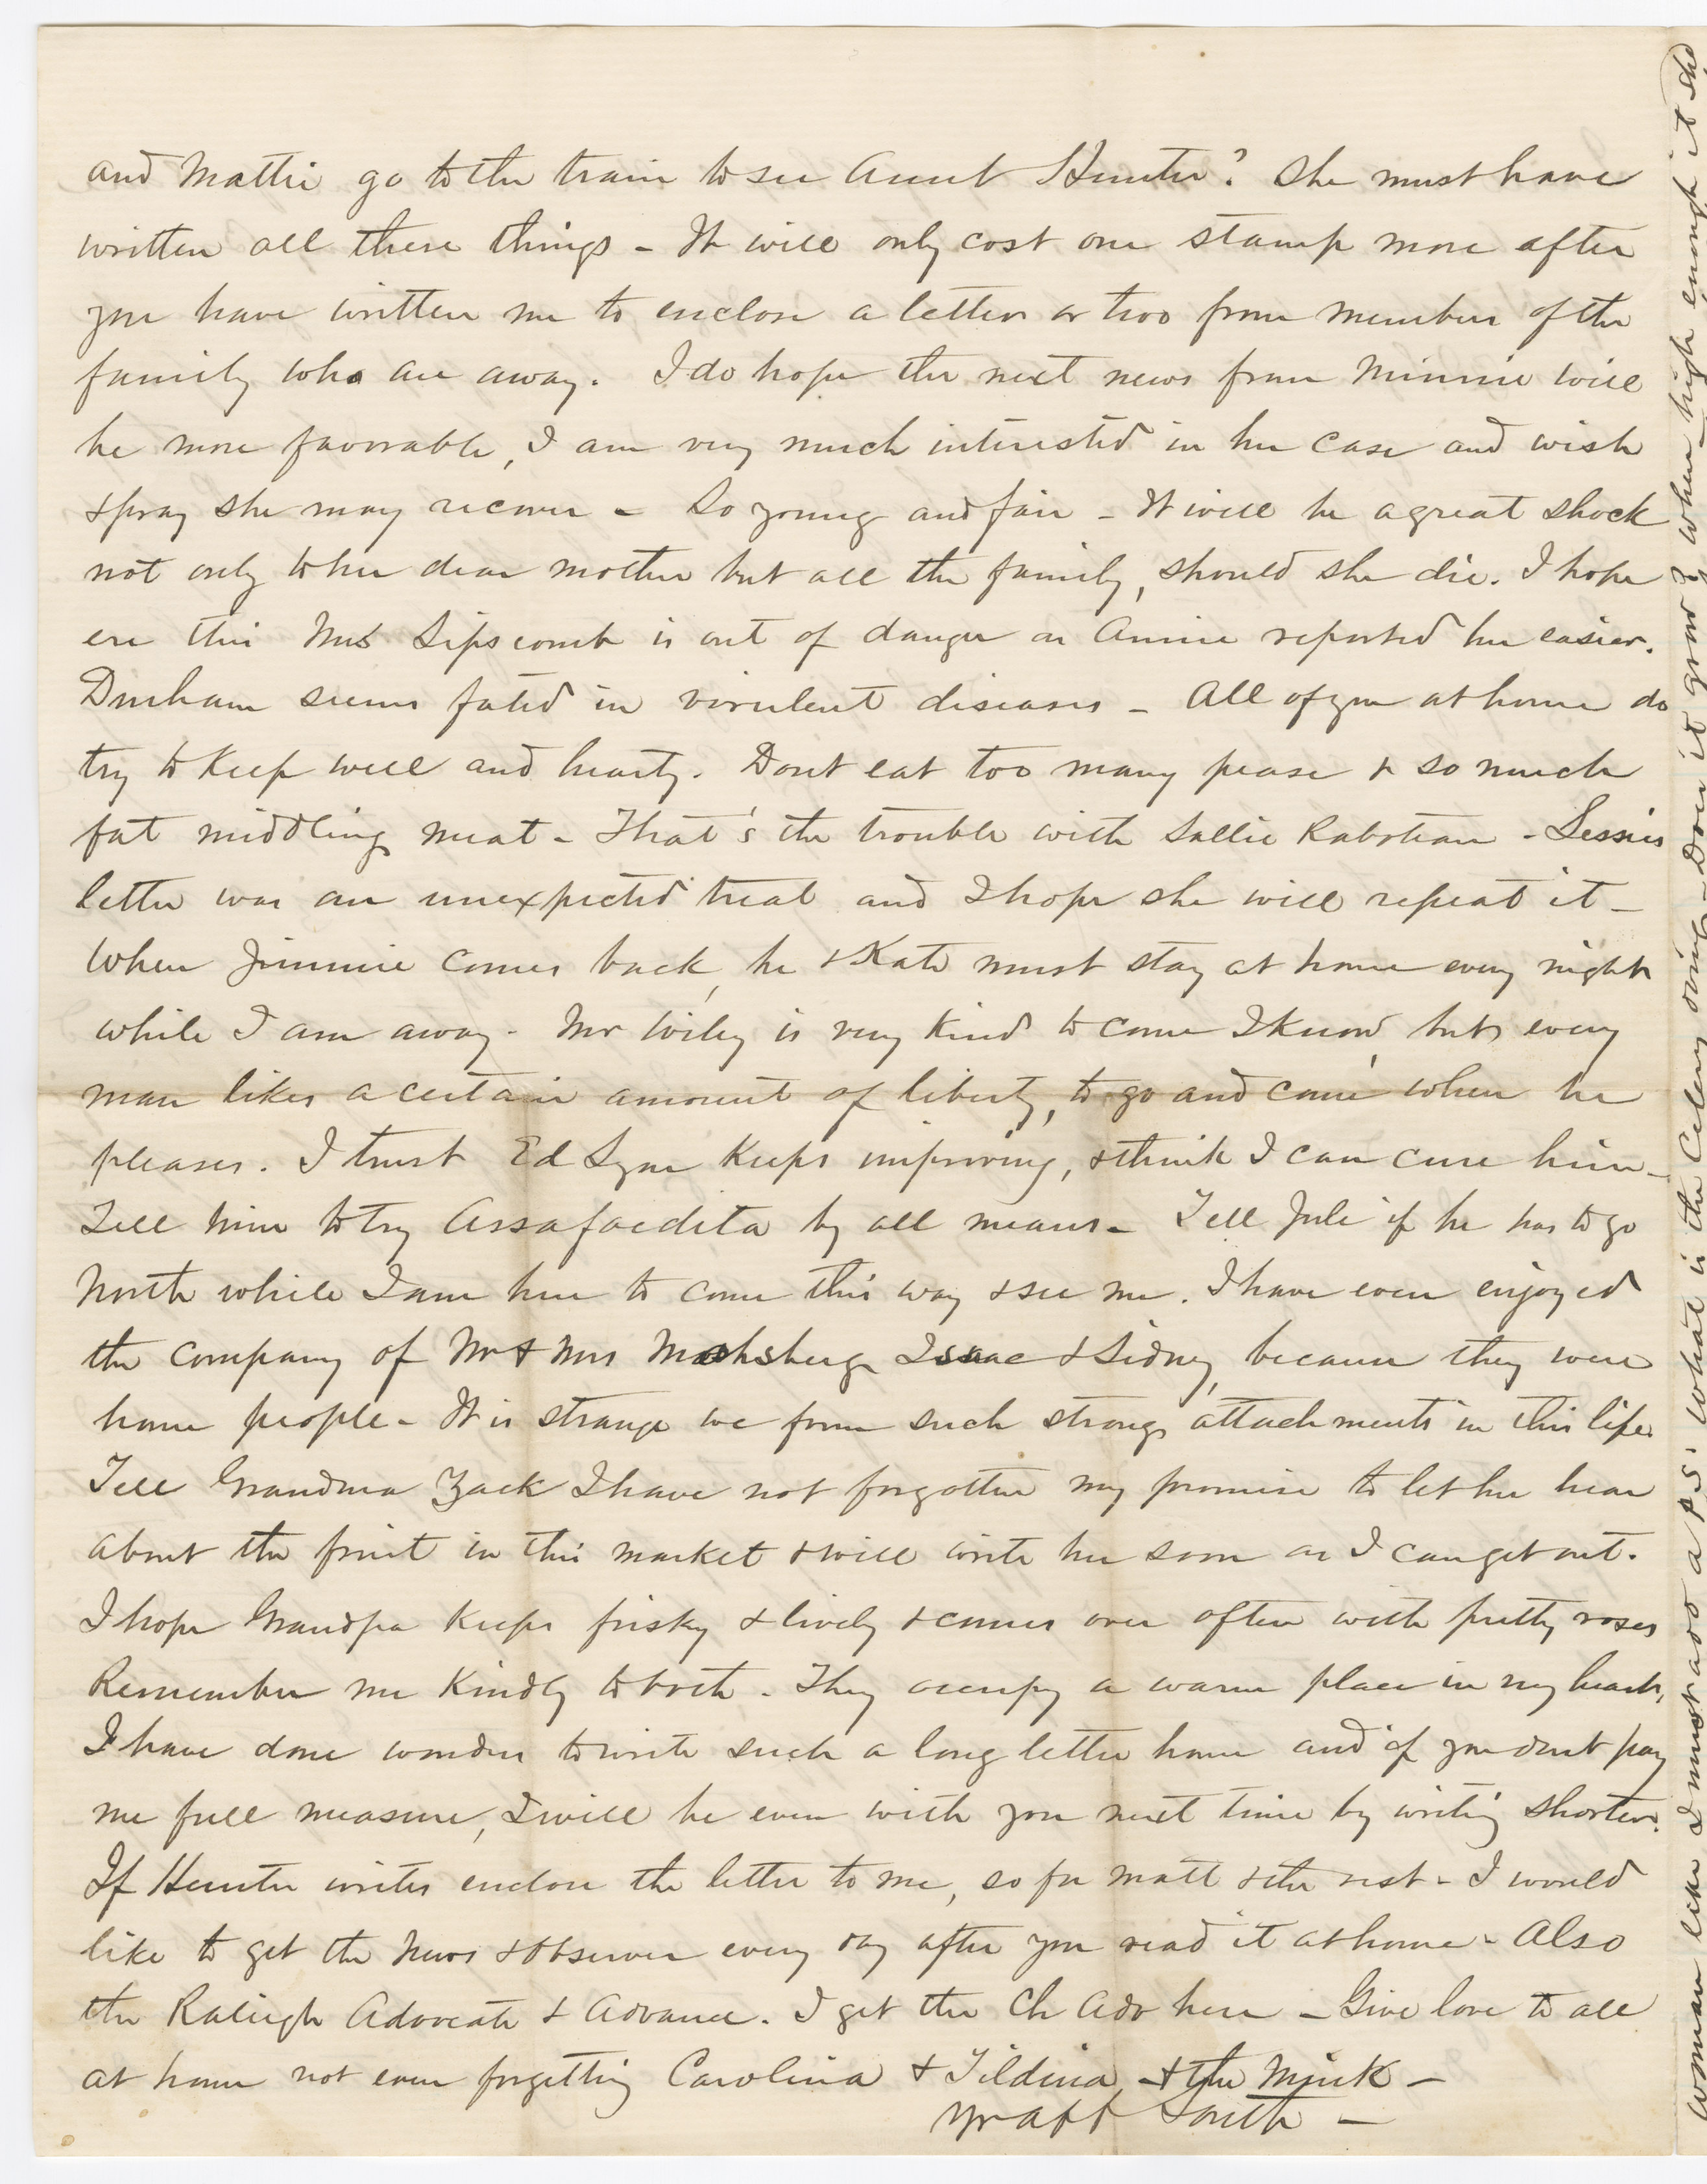 and Mattie go to the train to see Aunt Hunter? She must have
written all these things - It will only cost one stamp more after
you have written me to enclose a letter or two from members of the
family who are away. I do hope the next news from Minnie will
be more favorable, I am very much interested in her case and wish
& pray she may recover - So young and fair - It will be a great shock
not only to her dear mother but all the family, should she die. I hope
ere this Mrs Lipscomb is out of danger as Annie reported her easier.
Durham seems fated in virulent diseases - All of you at home do
try to keep well and hearty. Dont eat too many pease & so much
fat middling meat - That's the trouble with Sallie Raboteau - Lessies
letter was an unexpected treat and I hope she will repeat it -
When Jimmie comes back, he & Kate must stay at home every night
while I am away - Mr Wiley is very kind to come I know, but every
man likes a certain amount of liberty, to go and come when he
pleases. I trust Ed Lyon keeps improving, & think I can cure him -
Tell him to try Assafoedita by all means - Tell Jule if he has to go
North while I am here to come this way & see me. I have even enjoyed
the company of Mr & Mrs Isaac & Sidney, because they were
home people - It is strange we form such strong attachments in this life.
Tell Grandma Zack I have not forgotten my promise to let her hear
about the fruit in this market & will write her soon as I can get out.
I hope Grandpa keeps frisky & lively & comes over often with pretty roses
Remember me kindly to both - They occupy a warm place in my heart,
I have done wonders to write such a long letter home and if you dont pay
me full measure, I will be even with you next time by writing shorter.
If Hunter writes enclose the letter to me, so for Matt & the rest - I would
like to get the News & Observer every day after you read it at home - Also
the Raleigh Advocate & Advance. I get the Ch Adv here - Give love to all
at home not even forgetting Carolina & Tildina, & the Mink -
Yr aff South -
Woman like I must add a P.S. What is the Celery doing - Does it grow & when high enough it sho